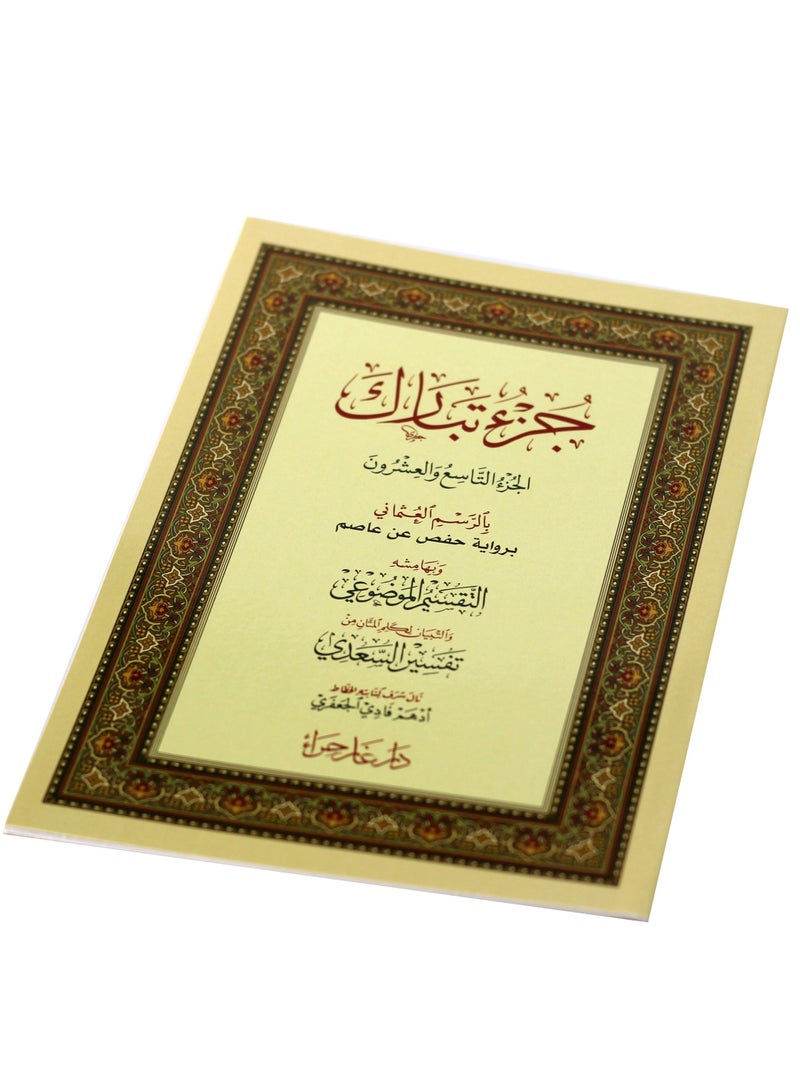 جُزْءُ تَبَارَكَ
الجُزْءُ التَّاسِعُ وَالعِشْرُونَ
بِالرَّسْمِ العُثْمَانِي
برواية حفص عن عاصم
وَبِهَامِشِهِ
التَّقْسِيمُ المَوْضُوعِيُّ
وَالتِّبْيَانُ لِكَلِمِ المَنَّانِ مِنْ
تَفْسِيْرِ السَّعْدِي
نَالَ شَرَفَ كِتَابَتِهِ الخَطَّاط
أَدْهَمْ فَادِي الجَعْفَرِيّ
دَارُ غَارِ حِرَاءَ